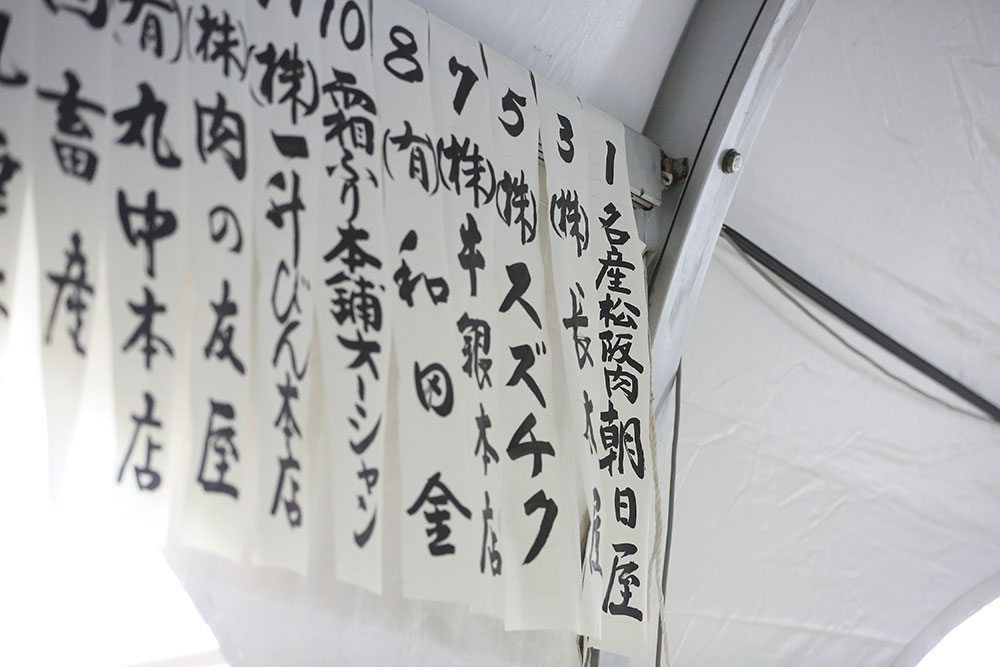 1 名産松阪肉 朝日屋
3 (株) 長太屋
5 (株) スズチク
7 (株) 牛銀本店
8 (有) 和田金
10 霜ふり本舗大ーシャン
(株) 一升びん本店
(株) 肉の友屋
(有) 丸中本店
畜産